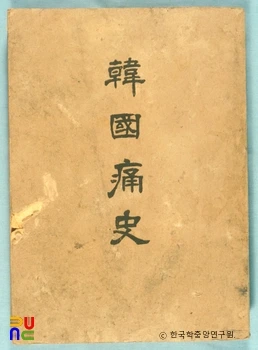 韓國痛史
© 한국학중앙연구원